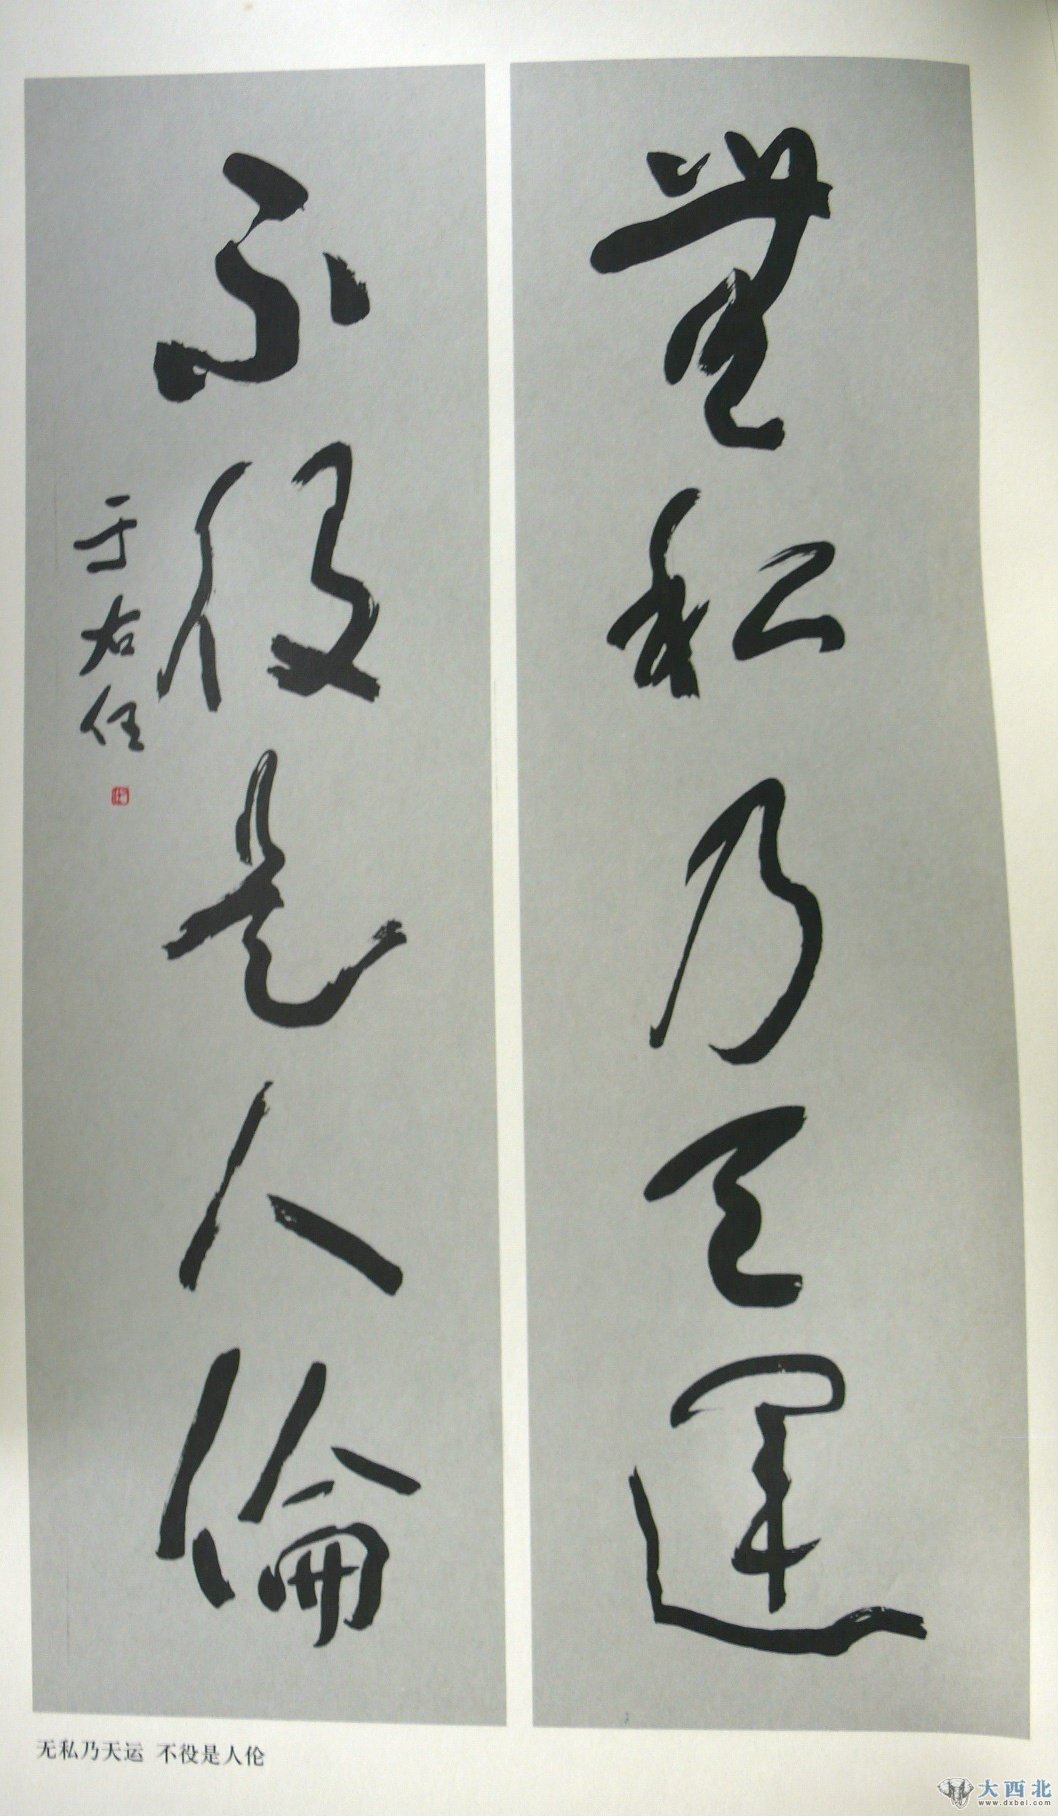 無私乃天運
不役是人倫
于右任
无私乃天运 不役是人伦
大西北
www.dxbei.com